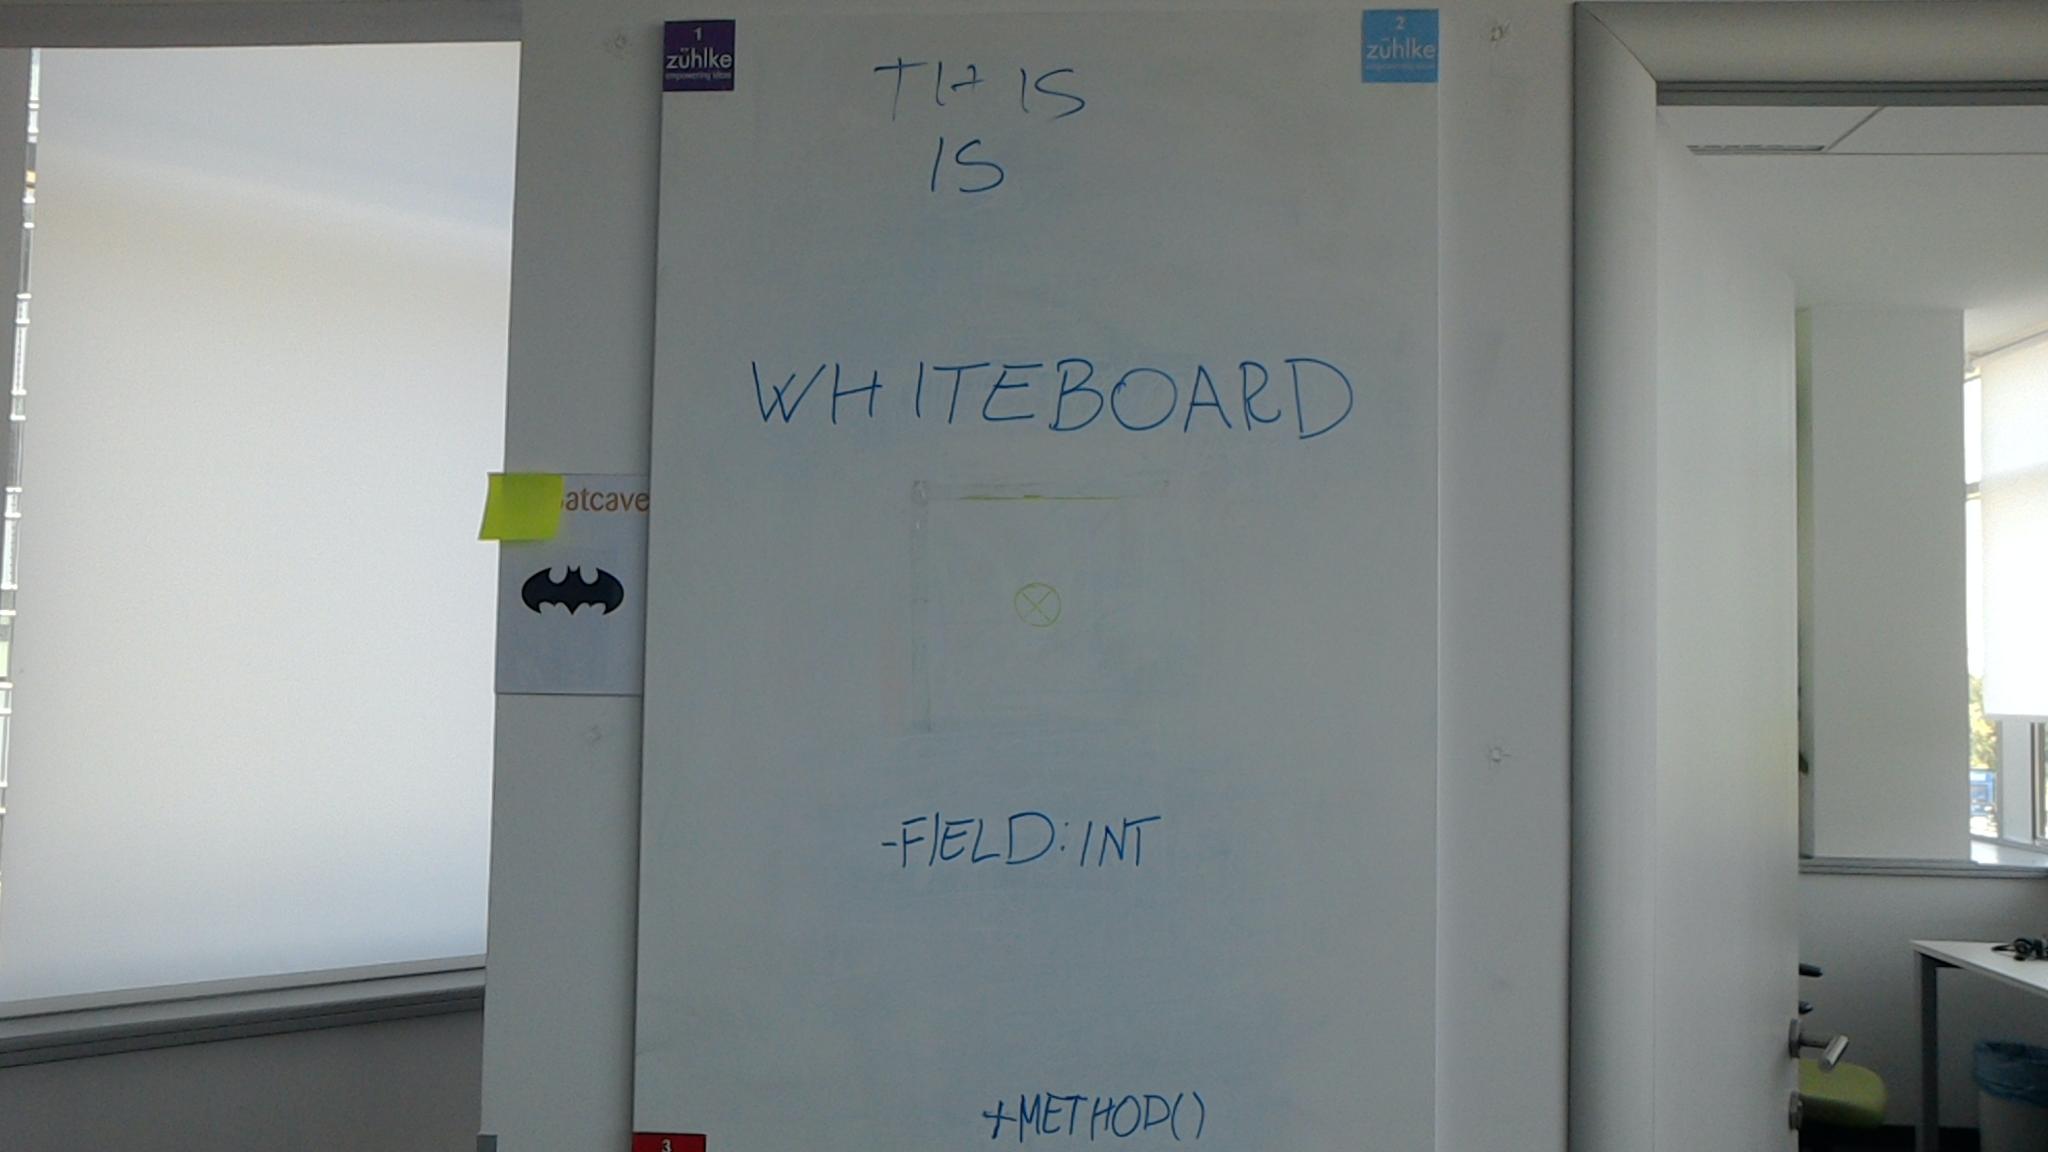 1
zühlke
empowering ideas
2
zühlke
empowering ideas
THIS
IS
WHITEBOARD
atcave
-FIELD:INT
+METHOD()
3